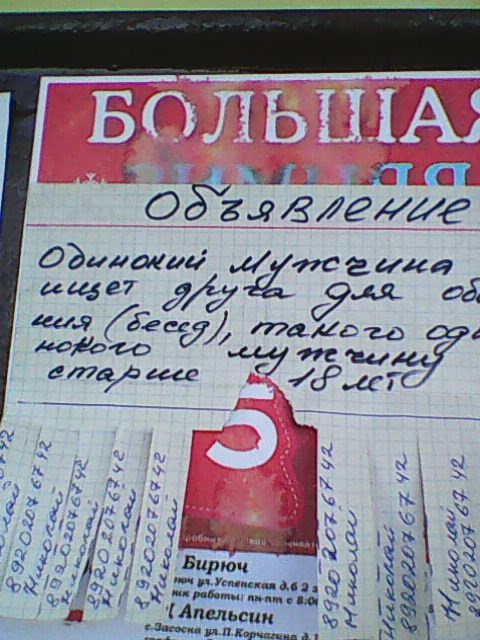 БОЛЬШАЯ
ЗИМНЯЯ
Объявление
Одинокий мужчина
ищет друга для об
ния (бесед), такого оди
нокого мужчину
старше 18 лет
5
Бирюч
ул.Успенская д.6
работы: пн-пт с 8:0
Апельсин
с.Засосна ул.П.Корчагина д.
89202076742
Николай
89202076742
Николай
89202076742
Николай
89202076742
Николай
89202076742
Николай
89202076742
Николай
89202076742
Николай